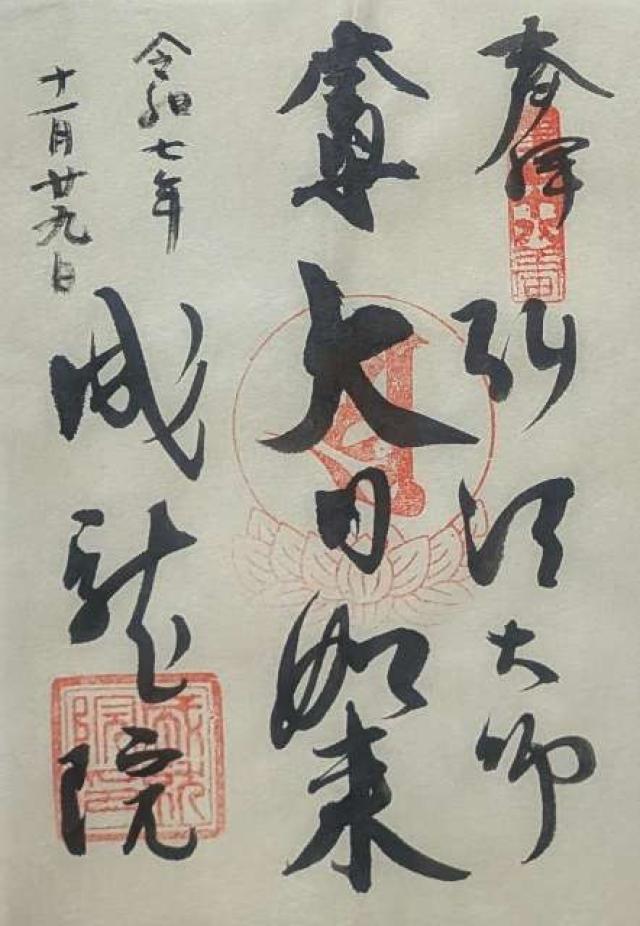 奉拝 弘法大師
大日如来
成就院
令和七年
十一月廿九日